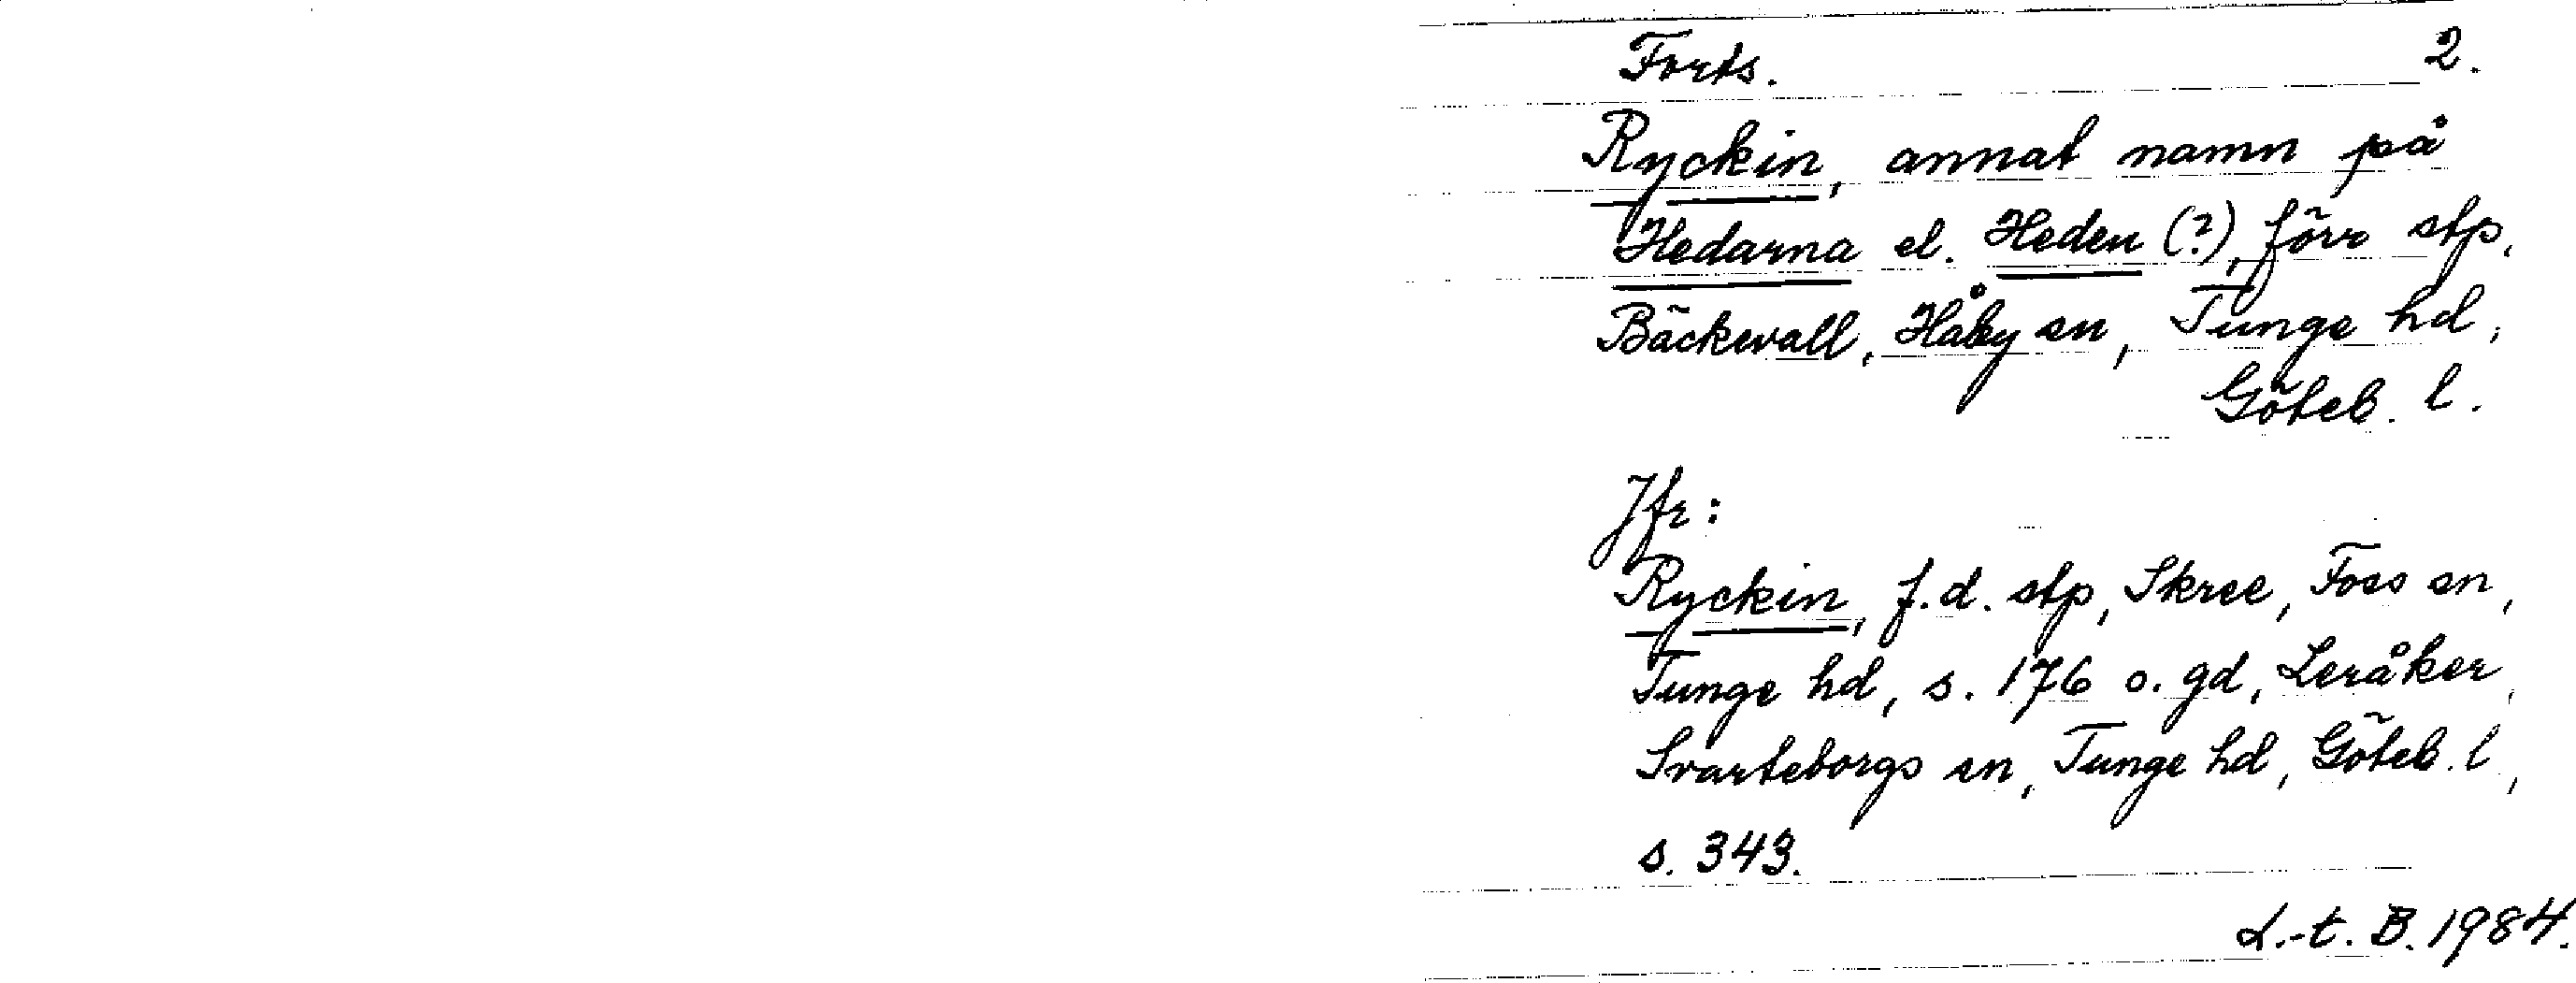 Forts. 2.
Ryckin, annat namn på
Hedarna el. Heden (?), förr stp,
Bäckevall, Håby sn, Tunge hd,
Göteb. l.
Jfr:
Ryckin, f.d. stp, Skree, Foss sn,
Tunge hd, s. 176 o. gd, Leråker,
Svarteborgs sn, Tunge hd, Göteb. l,
s. 343.
L.-t. B. 1984.